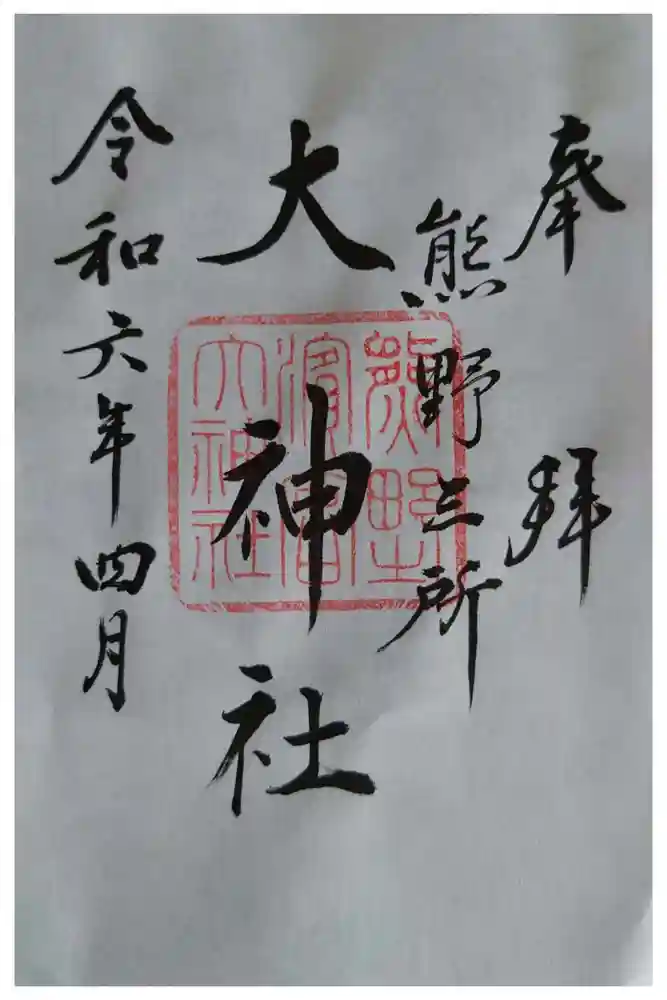 奉拝
熊野三所
大神社
令和六年四月
熊野
濱宮
大神社